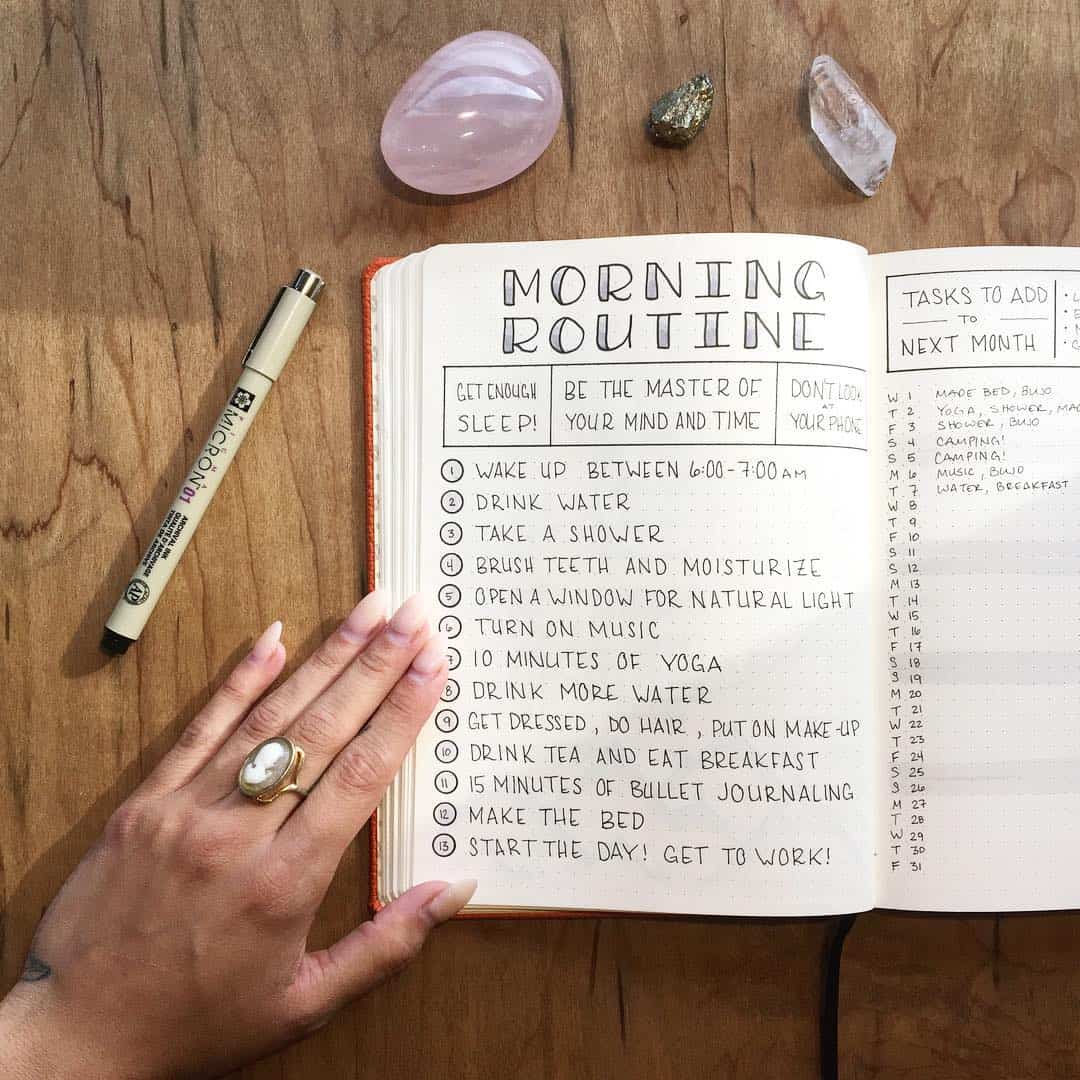 MORNING
ROUTINE
GET ENOUGH
SLEEP!
BE THE MASTER OF
YOUR MIND AND TIME
DON'T LOOK
AT
YOUR PHONE
1 WAKE UP BETWEEN 6:00-7:00 AM
2 DRINK WATER
3 TAKE A SHOWER
4 BRUSH TEETH AND MOISTURIZE
5 OPEN A WINDOW FOR NATURAL LIGHT
6 TURN ON MUSIC
7 10 MINUTES OF YOGA
8 DRINK MORE WATER
9 GET DRESSED, DO HAIR, PUT ON MAKE-UP
10 DRINK TEA AND EAT BREAKFAST
11 15 MINUTES OF BULLET JOURNALING
12 MAKE THE BED
13 START THE DAY! GET TO WORK!
TASKS TO ADD
TO
NEXT MONTH
W 1 MADE BED, BUJO
T 2 YOGA, SHOWER,
F 3 SHOWER, BUJO
S 4 CAMPING!
S 5 CAMPING!
M 6 MUSIC, BUJO
T 7 WATER, BREAKFAST
W 8
T 9
F 10
S 11
S 12
M 13
T 14
W 15
T 16
F 17
S 18
S 19
M 20
T 21
W 22
T 23
F 24
S 25
S 26
M 27
T 28
W 29
T 30
F 31
PIGMA
MICRON 01
ARCHIVAL INK
QUALITÉ D'ARCHIVAGE
TINTA DE ARCHIVO
AP